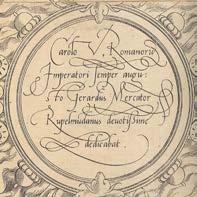 Carolo V. Romanorū
Imperatori semper augu:
sto Gerardus Mercator
Rupelmūdanus devotissime
dedicabat